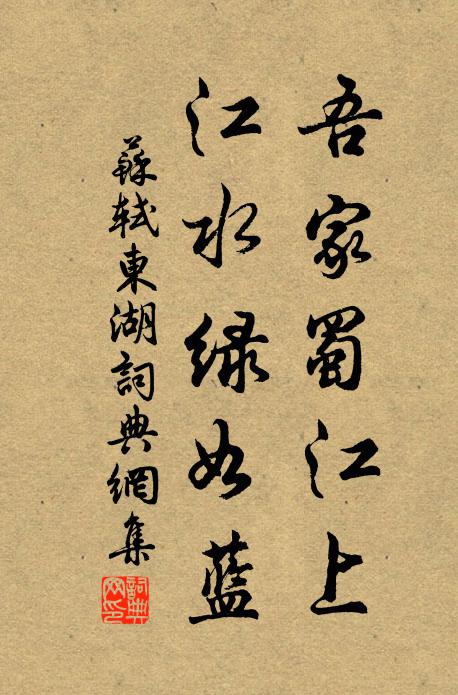 吾家蜀江上
江水緑如藍
蘇軾東湖詞典網集
詞典网印